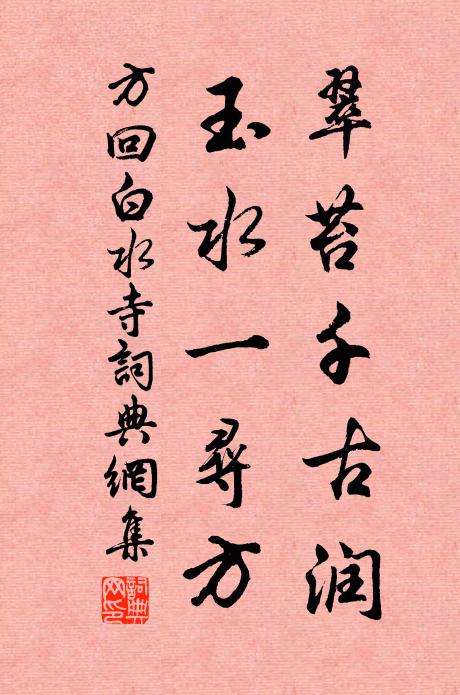 翠苔千古润
玉水一尋方
方回白水寺詞典網集
詞典网印